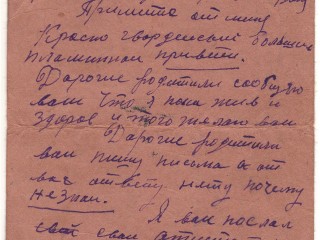 Примите от мине
Красно гвардейский большой
пламинной привети.
Дарогие родители сообщаю
вам что я пока жив и
здоров и того желаю вам
Дарогие родители
вам пишу письма а от
вас ответу нету почему
не знаю.
Я вам послал
свой